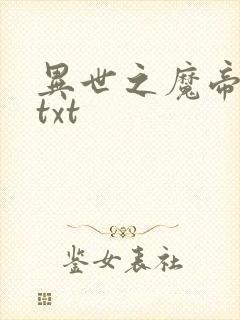 異世之魔帝
txt
鉴女表社